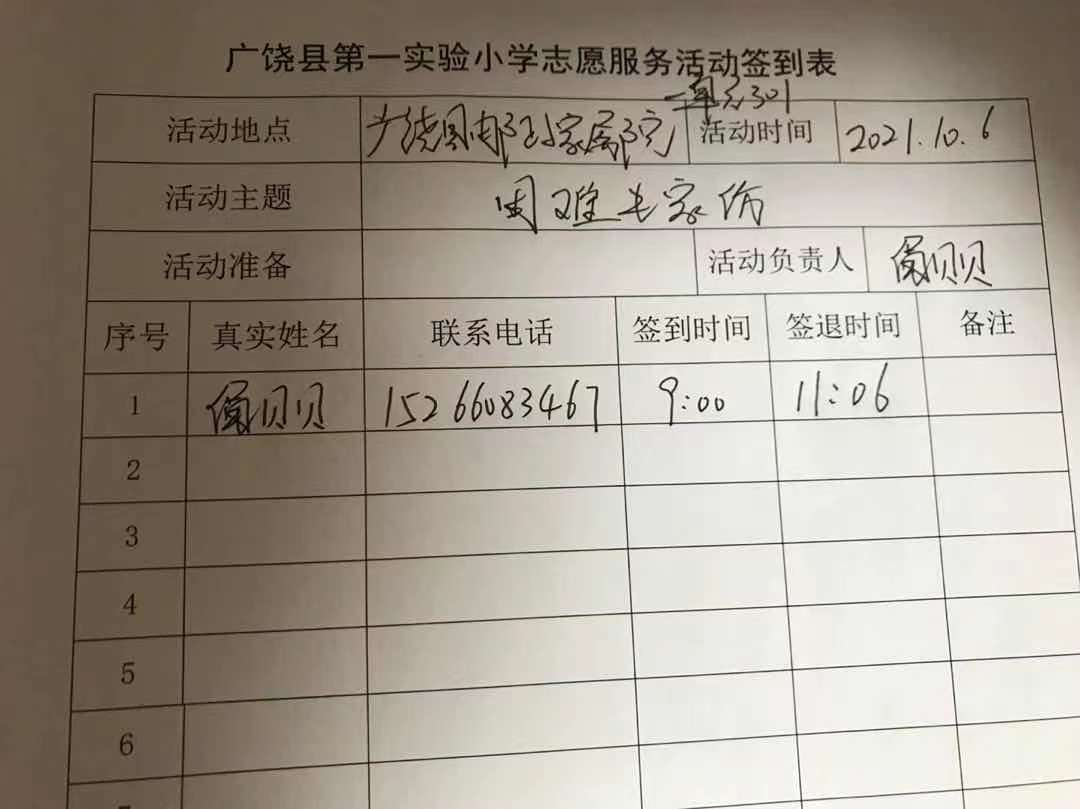 广饶县第一实验小学志愿服务活动签到表
一单元301
活动地点 广饶县邮政家属院 活动时间 2021.10.6
活动主题 困难生家访
活动准备 活动负责人 贝贝
序号 真实姓名 联系电话 签到时间 签退时间 备注
1 贝贝 15266083467 9:00 11:06
2
3
4
5
6